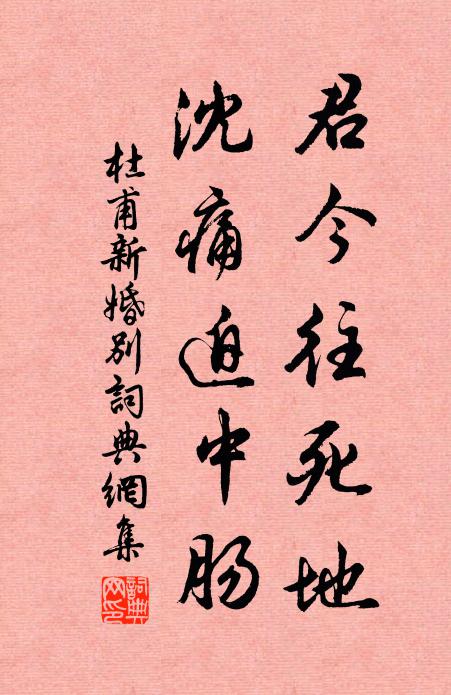 君今往死地
沈痛迫中肠
杜甫新婚别詞典網集
詞典網印